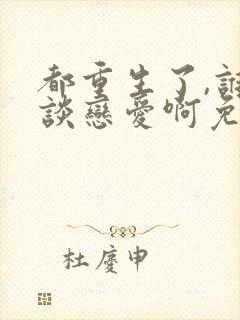 都重生了,誰
談戀愛啊免
杜慶申